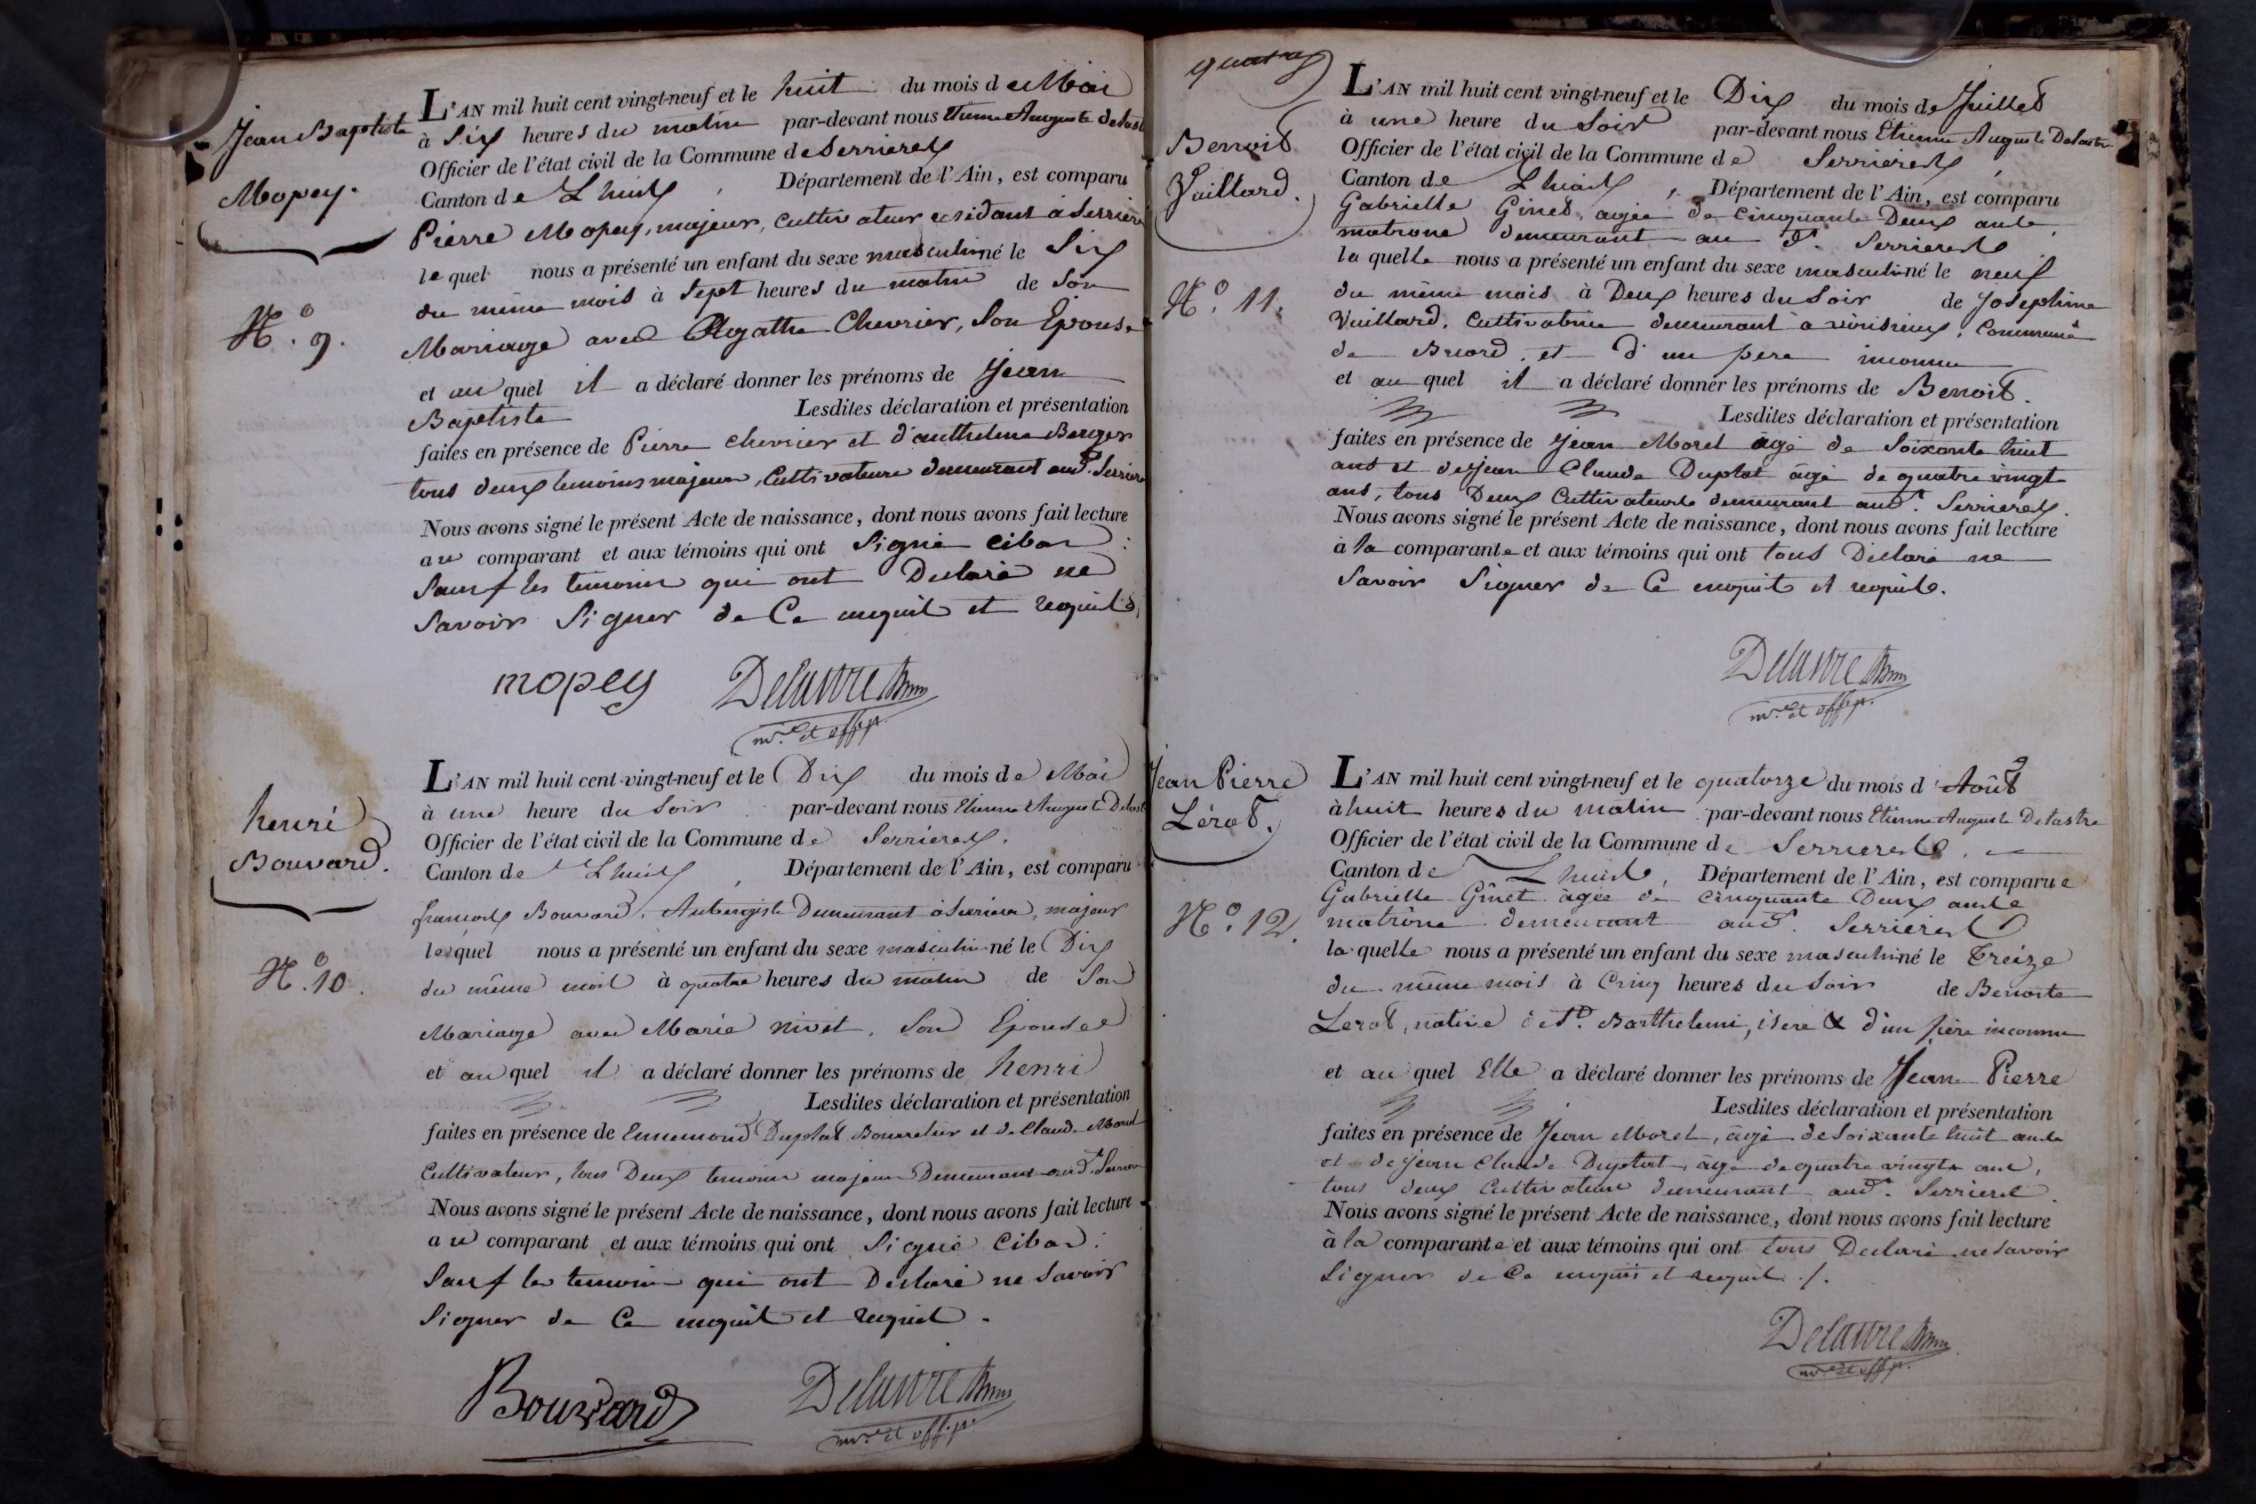 Jean Baptiste
Mopey.
N.o 9.
L'AN mil huit cent vingt-neuf et le huit du mois de Mai
à Six heures du matin par-devant nous Etienne Auguste Delast
Officier de l'état civil de la Commune de Serrieres
Canton de Lhuis, Département de l'Ain, est comparu
Pierre Mopey, majeur, cultivateur residant à Serriere
le quel nous a présenté un enfant du sexe masculin né le Six
du même mois à Sept heures du matin de Son
Mariage avec Agathe Chevrier, Son Epouse
et au quel il a déclaré donner les prénoms de Jean
Baptiste Lesdites déclaration et présentation
faites en présence de Pierre Chevrier et d'anthelme Berger
tous deux temoins majeurs, Cultivateurs demeurant aud.t Serriere
Nous avons signé le présent Acte de naissance, dont nous avons fait lecture
au comparant et aux témoins qui ont Signé cibas :
Sauf les temoins qui ont Declaré ne
Savoir Signer de Ce enquit et requits,
mopey Delastre
m.re et off.p.
henri
Bouvard.
N.o 10.
L'AN mil huit cent vingt-neuf et le Dix du mois de Mai
à une heure du Soir par-devant nous Etienne Auguste Delast
Officier de l'état civil de la Commune de Serrieres.
Canton de Lhuis, Département de l'Ain, est comparu
francois Bouvard, Aubergiste Demeurant à Serrieres, majeur
lequel nous a présenté un enfant du sexe masculin né le Dix
du même mois à quatre heures du matin de Son
Mariage avec Marie nivet, Son Epouse
et au quel il a déclaré donner les prénoms de henri
Lesdites déclaration et présentation
faites en présence de Ennemond Duplat Bourrelier et de Claude Morel
Cultivateur, tous Deux temoins majeurs Demeurant aud.t Serrier
Nous avons signé le présent Acte de naissance, dont nous avons fait lecture
au comparant et aux témoins qui ont Signé Cibas :
Sauf les temoins qui ont Declaré ne Savoir
Signer de Ce enquit et requit.
Bouvard Delastre
m.re et off.p.
Benoit
Vuillard.
N.o 11.
L'AN mil huit cent vingt-neuf et le Dix du mois de Juillet
à une heure du Soir par-devant nous Etienne Auguste Delastre
Officier de l'état civil de la Commune de Serrieres
Canton de Lhuis, Département de l'Ain, est comparu
Gabrielle Ginet, agée de Cinquante Deux ans
matrone demeurant au d.t Serrieres
la quelle nous a présenté un enfant du sexe masculin né le neuf
du même mois à Deux heures du Soir de Josephine
Vuillard, Cultivatrice demeurant à vérisieux, Commune
de Briord, et d'un pere inconnu
et au quel il a déclaré donner les prénoms de Benoit.
Lesdites déclaration et présentation
faites en présence de Jean Morel agé de Soixante huit
ans et de Jean Claude Duplat âgé de quatre vingt
ans, tous Deux Cultivateurs demeurant aud.t Serrieres.
Nous avons signé le présent Acte de naissance, dont nous avons fait lecture
à la comparante et aux témoins qui ont tous Declaré ne
Savoir Signer de Ce enquit et requits.
Delastre
m.re et off.p.
Jean Pierre
Lérot.
N.o 12.
L'AN mil huit cent vingt-neuf et le quatorze du mois d'Août
à huit heures du matin par-devant nous Etienne Auguste Delastre
Officier de l'état civil de la Commune de Serrieres.
Canton de Lhuis, Département de l'Ain, est comparue
Gabrielle Ginet âgée de Cinquante Deux ans
matrône demeurant aud.t Serrieres
la quelle nous a présenté un enfant du sexe masculin né le Treize
du même mois à Cinq heures du Soir de Benoite
Lerot, native de S.t Barthelemi, isere & d'un père inconnu
et au quel Elle a déclaré donner les prénoms de Jean Pierre
Lesdites déclaration et présentation
faites en présence de Jean Morel, âgé de Soixante huit ans
et de Jean Claude Duplat, âgé de quatre vingts ans,
tous deux Cultivateurs demeurant aud.t Serrieres.
Nous avons signé le présent Acte de naissance, dont nous avons fait lecture
à la comparante et aux témoins qui ont tous Declaré ne Savoir
Signer de Ce enquis et requit ./.
Delastre
m.re et off.p.